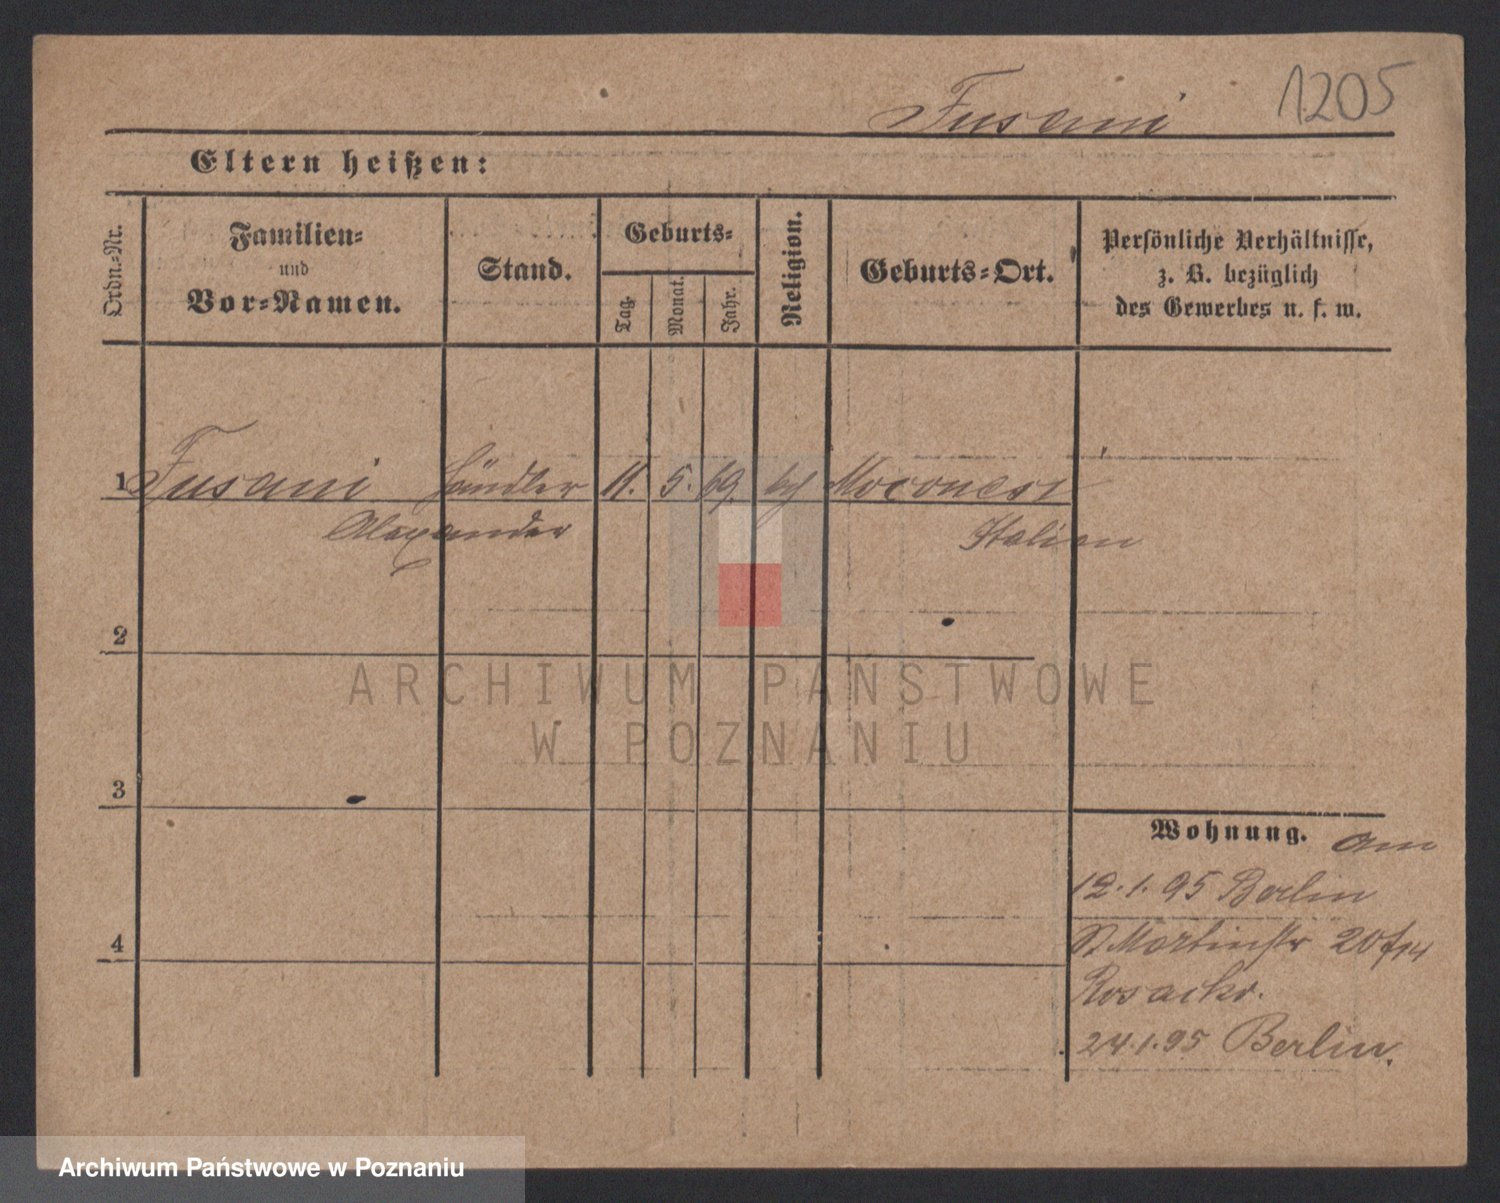 1205
Fusani
Eltern heißen:
Ordn.-Nr.
Familien-
und
Vor-Namen.
Stand.
Geburts-
Tag.
Monat.
Jahr.
Religion.
Geburts-Ort.
Persönliche Verhältnisse,
z. B. bezüglich
des Gewerbes u. s. w.
1 Fusani Händler 11. 5. 69. Moconesi
Alexander Italien
2
3
4
Wohnung. am
12.1.95 Berlin
St Martinstr 20
24.1.95 Berlin.
ARCHIWUM PAŃSTWOWE
W POZNANIU
Archiwum Państwowe w Poznaniu